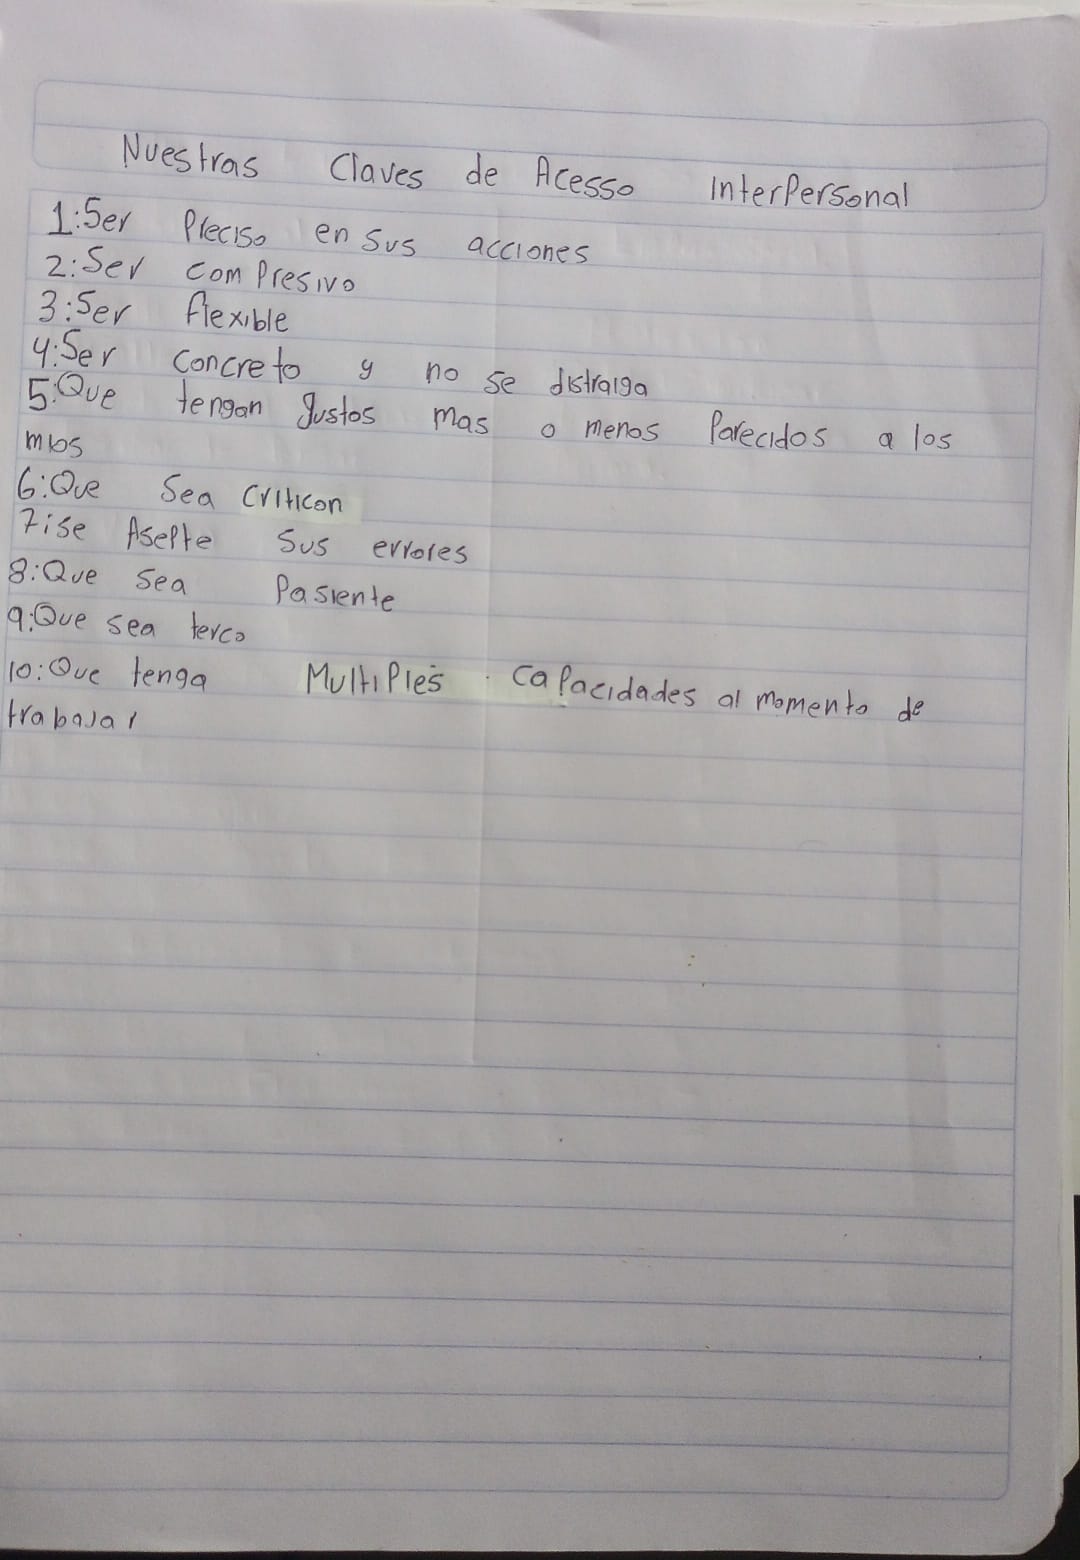 Nuestras Claves de Acesso InterPersonal
1:Ser Preciso en Sus acciones
2:Ser comPresivo
3:Ser flexible
4:Ser concreto y no se distraiga
5:Que tengan gustos mas o menos Parecidos a los
mios
6:Que Sea criticon
7:se Asepte Sus errores
8:Que sea Pasiente
9:Que sea terco
10:Que tenga MultiPles caPacidades al momento de
trabajar